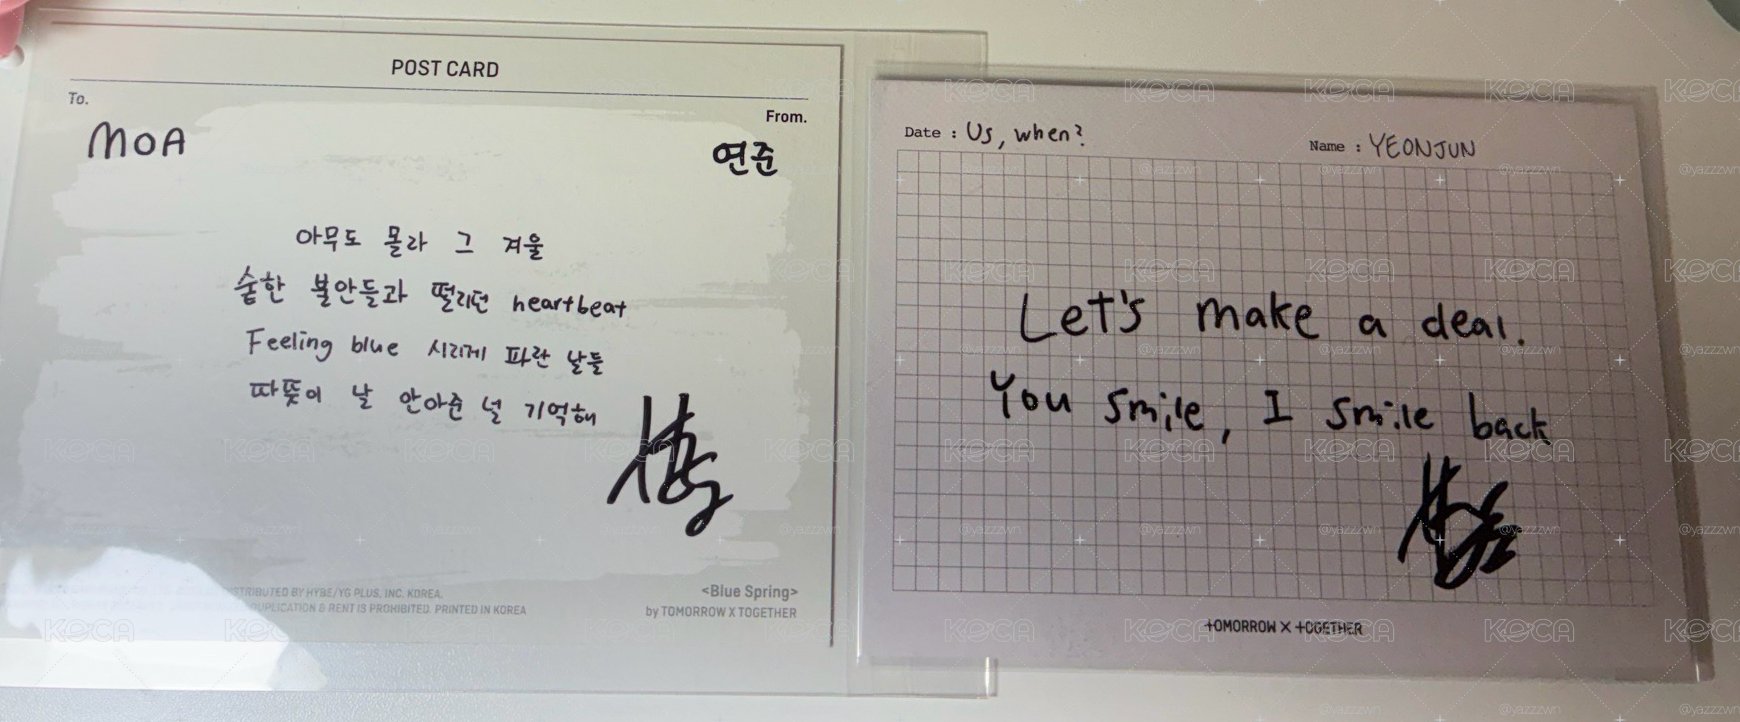 POST CARD
To.
MOA
From.
연준
아무도 몰라 그 겨울
숱한 불안들과 떨리던 heartbeat
Feeling blue 시리게 파란 날들
따뜻이 날 안아준 널 기억해
STRIBUTED BY HYBE/YG PLUS, INC. KOREA.
DUPLICATION & RENT IS PROHIBITED. PRINTED IN KOREA
<Blue Spring>
by TOMORROW X TOGETHER
Date : Us, when?
Name : YEONJUN
Let's make a deal.
You smile, I smile back
TOMORROW X TOGETHER
KOCA
@yazzzwn